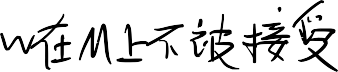 w在M上不被接受